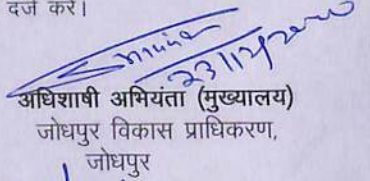 दर्ज करें।
अधिशाषी अभियंता (मुख्यालय)
जोधपुर विकास प्राधिकरण,
जोधपुर